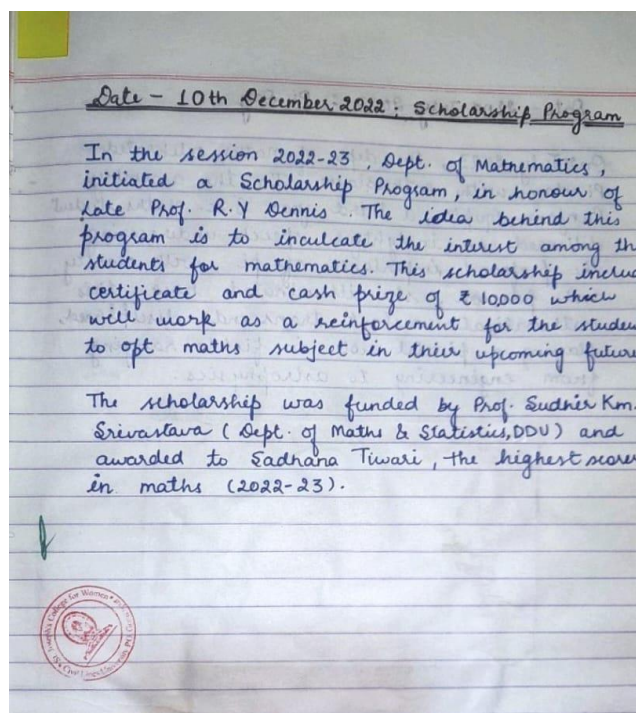 Date - 10th December 2022 : Scholarship Program
In the session 2022-23, Dept. of Mathematics,
initiated a Scholarship Program, in honour of
Late Prof. R.Y Dennis The idea behind this
program is to inculcate the interest among th
students for mathematics. This scholarship includ
certificate and cash prize of ₹ 10,000 which
will work as a reinforcement for the studen
to opt maths subject in thier upcoming future
The scholarship was funded by Prof. Sudhir Km.
Srivastava (Dept. of Maths & Statistics, DDU) and
awarded to Sadhana Tiwari, the highest scorer
in maths (2022-23).
College for Women
Civil Lines